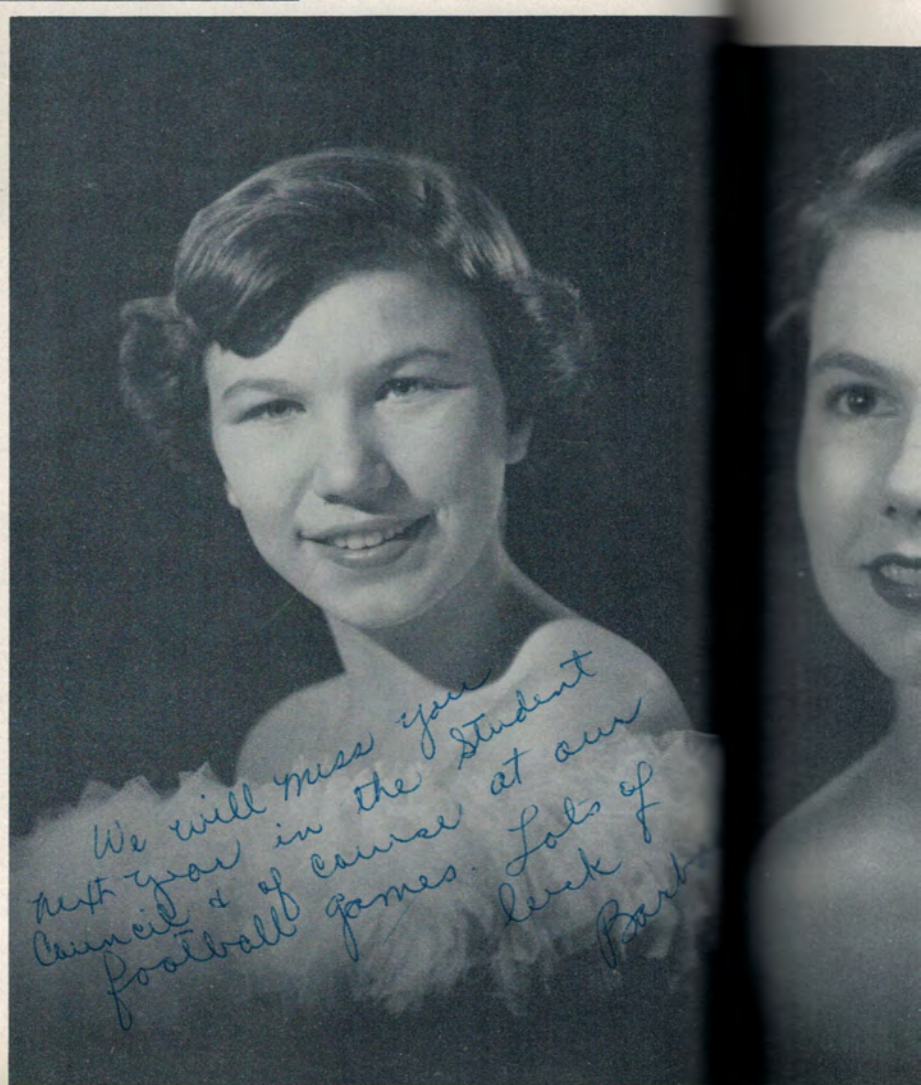 We will miss you
next year in the Student
Council & of course at our
football games. Lots of
luck
Barb